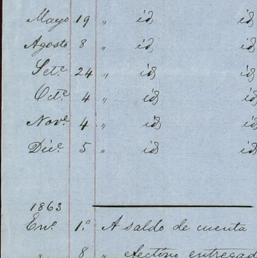 Mayo 19 " id id
Agosto 8 " id id
Set.e 24 " id id
Oct.e 4 " id id
Nov.e 4 " id id
Dic.e 5 " id id
1863
En.o 1.o A saldo de cuenta
" 8 " efectivo entregad